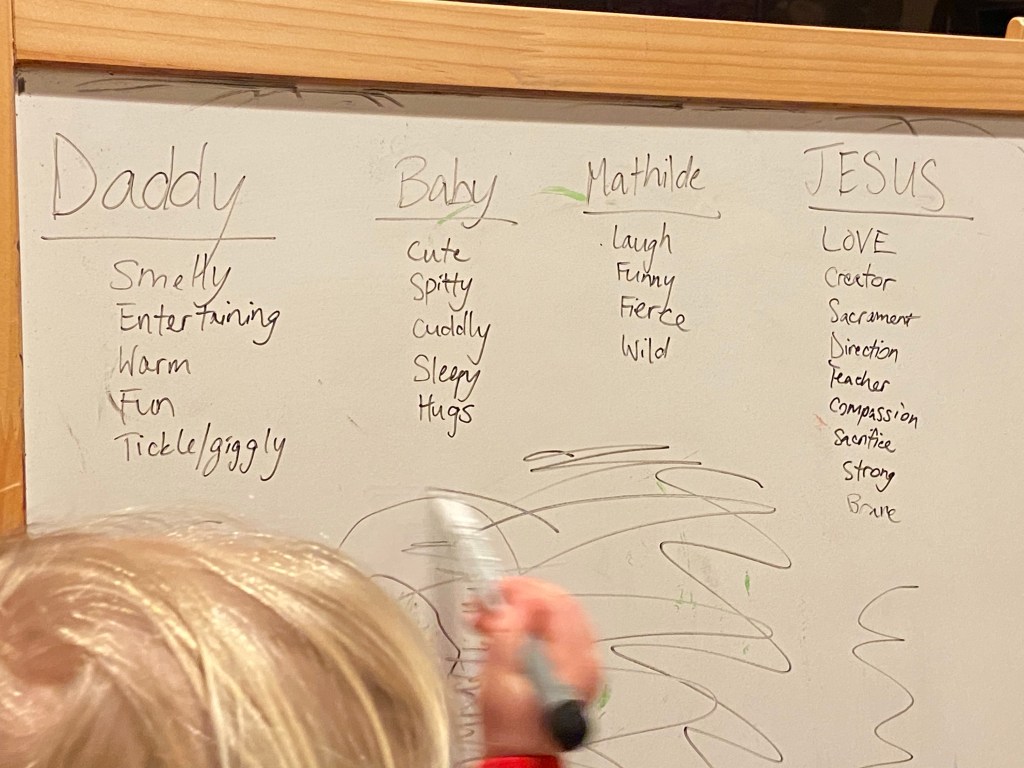 Daddy
Smelly
Entertaining
Warm
Fun
Tickle/giggly
Baby
Cute
Spitty
Cuddly
Sleepy
Hugs
Mathilde
Laugh
Funny
Fierce
Wild
JESUS
LOVE
Creator
Sacrament
Direction
Teacher
Compassion
Sacrifice
Strong
Brave